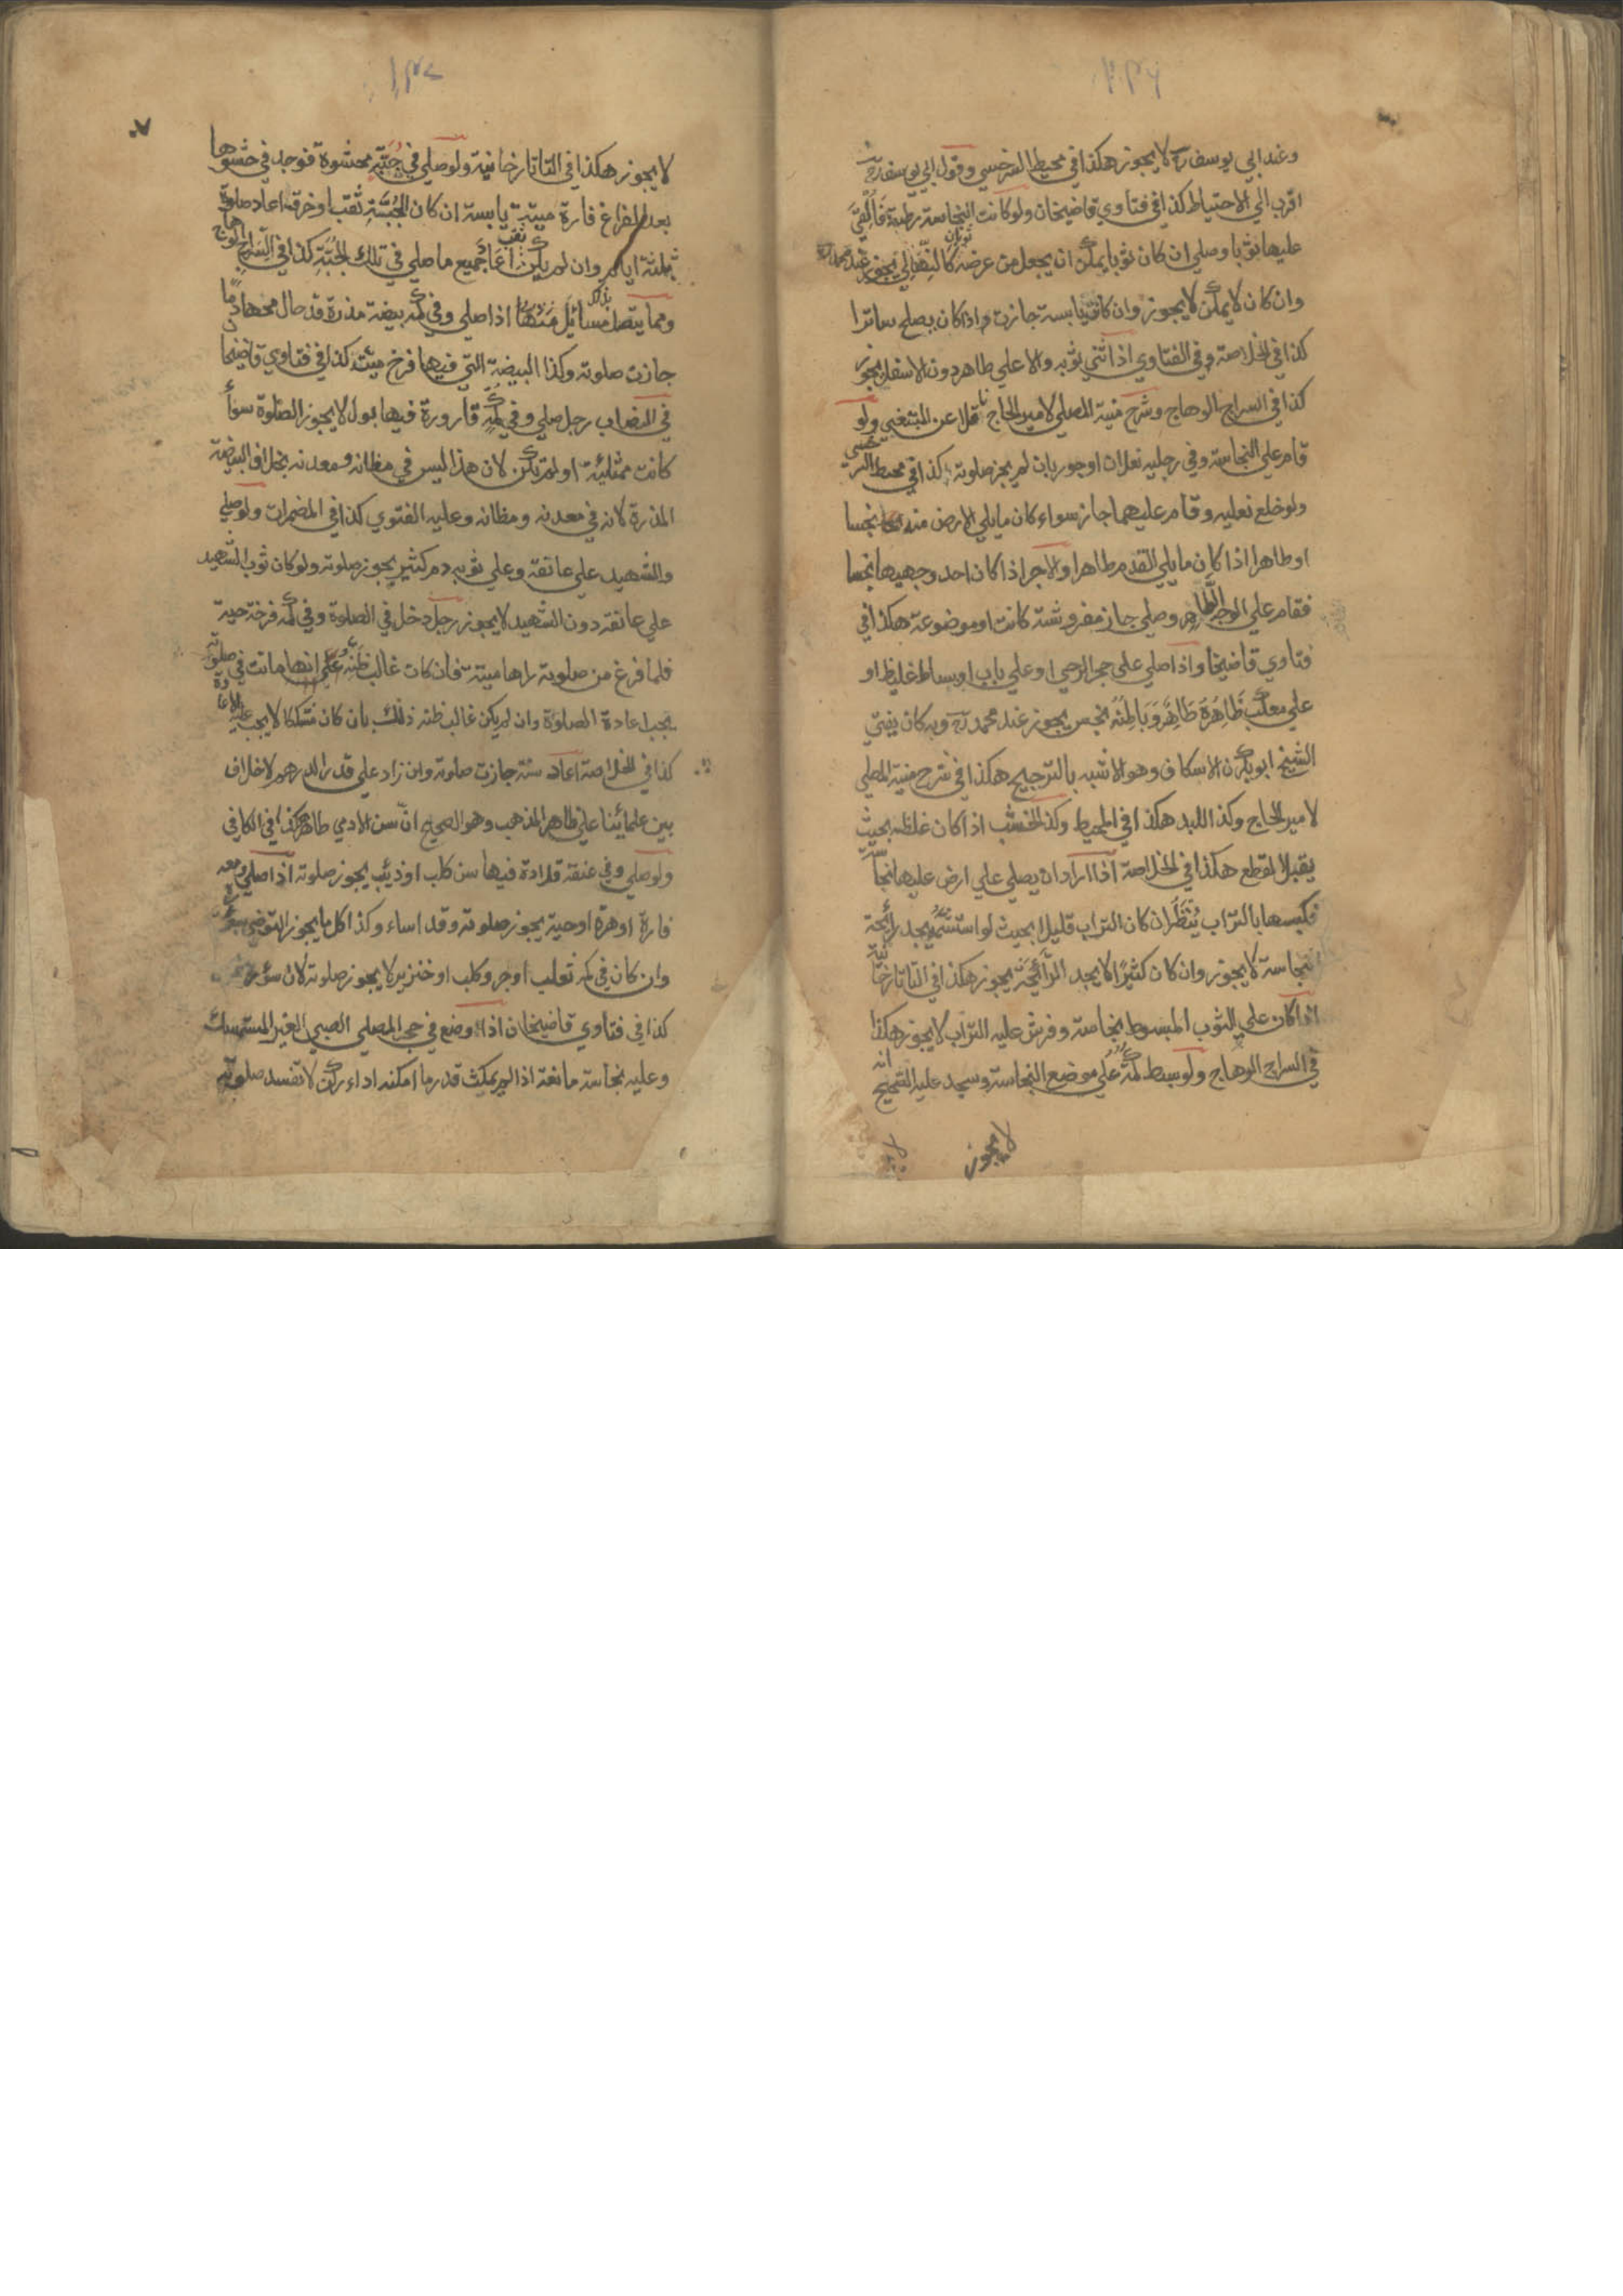 ١٣٦
وعند ابي يوسف رح لا يجوز هكذا في محيط السرخسي وقول ابي يوسف رح
اقرب الي الاحتياط كذا في فتاوي قاضيخان ولو كانت النجاسة رطبة فالقي
عليها ثوبا وصلي ان كان ثوبا يمكن ان يجعل من عرضه ثوبان كالنهالي يجوز عند محمد رح
وان كان لا يمكن لا يجوز وان كانت يابسة جازت واذا كان يصلح ساترا
كذا في الخلاصة وفي الفتاوي اذا ثني ثوبه والاعلي طاهر دون الاسفل يجوز
كذا في السراج الوهاج وشرح منية المصلي لامير الحاج ناقلا عن المبتغي ولو
قام علي النجاسة وفي رجليه نعلان او جوربان لم يجز صلوته كذا في محيط السرخسي
ولو خلع نعليه وقام عليهما جاز سواء كان ما يلي الارض منه نجسا
او طاهرا اذا كان ما يلي القدم طاهرا والاجر اذا كان احد وجهيها نجسا
فقام علي الوجه الطاهر وصلي جاز مفروشة كانت او موضوعة هكذا في
فتاوي قاضيخا واذا صلي علي حجر الرحي او علي باب او بساط غليظ او
علي مكعب ظاهره طاهر وباطنه نجس يجوز عند محمد رح وبه كان يفتي
الشيخ ابو بكرن الاسكاف وهو الاشبه بالترجيح هكذا في شرح منية المصلي
لامير الحاج وكذا اللبد هكذا في المحيط وكذا الخشب اذا كان غلظه بحيث
يقبل القطع هكذا في الخلاصة اذا اراد ان يصلي علي ارض عليها نجاسة
فكبسها بالتراب ينظر ان كان التراب قليلا بحيث لو استشمه يجد رائحة
النجاسة لا يجوز وان كان كثيرا لا يجد الرائحة يجوز هكذا في التاتارخانية
اذا كان علي الثوب المبسوط نجاسة وفرش عليه التراب لا يجوز هكذا
في السراج الوهاج ولو بسط كمه علي موضع النجاسة وسجد عليه الصحيح انه
لا يجوز
١٣٧
لا يجوز هكذا في التاتارخانية ولو صلي في جبة محشوة فوجد في حشوها
بعد الفراغ فارة ميتة يابسة ان كان للجبة ثقب او خرق اعاد صلوة
ثلثة ايام وان لم يكن ثقب اعاد جميع ما صلي في تلك الجبة كذا في السراج الوهاج
ومما يتصل بذلك مسائل منها اذا صلي وفي كمه بيضة مذرة قد حال محها دما
جازت صلوته وكذا البيضة التي فيها فرخ ميت كذا في فتاوي قاضيخا
في النصاب رجل صلي وفي كمه قارورة فيها بول لا يجوز الصلوة سواء
كانت ممتلئة او لم تكن لان هذا ليس في مظانه ومعدنه بخلاف البيضة
المذرة لانه في معدنه ومظانه وعليه الفتوي كذا في المضمرات ولو صلي
والشهيد علي عاتقه وعلي ثوبه دم كثير يجوز صلوته ولو كان ثوب الشهيد
علي عاتقه دون الشهيد لا يجوز رجل دخل في الصلوة وفي كمه فرخة حية
فلما فرغ من صلوته راها ميتة فان كان غالب ظنه علي انها ماتت في صلوته
يجب اعادة الصلوة وان لم يكن غالب ظنه ذلك بان كان مشكلا لا يجب عليه الاعادة
كذا في الخلاصة اعاد سنه جازت صلوته وان زاد علي قدر الدرهم لا خلاف
بين علمائنا علي ظاهر المذهب وهو الصحيح ان سن الادمي طاهر هكذا في الكافي
ولو صلي وفي عنقه قلادة فيها سن كلب او ذئب يجوز صلوته اذا صلي ومعه
فارة او هرة او حية يجوز صلوته وقد اساء وكذا كل ما يجوز التوضي بسؤره
وان كان في كمه ثعلب او جرو كلب او خنزير لا يجوز صلوته لان سؤره
كذا في فتاوي قاضيخان اذا وضع في حجر المصلي الصبي الغير المستمسك
وعليه نجاسة مانعة اذا لم يمكث قدر ما امكنه اداء ركن لا تفسد صلوته